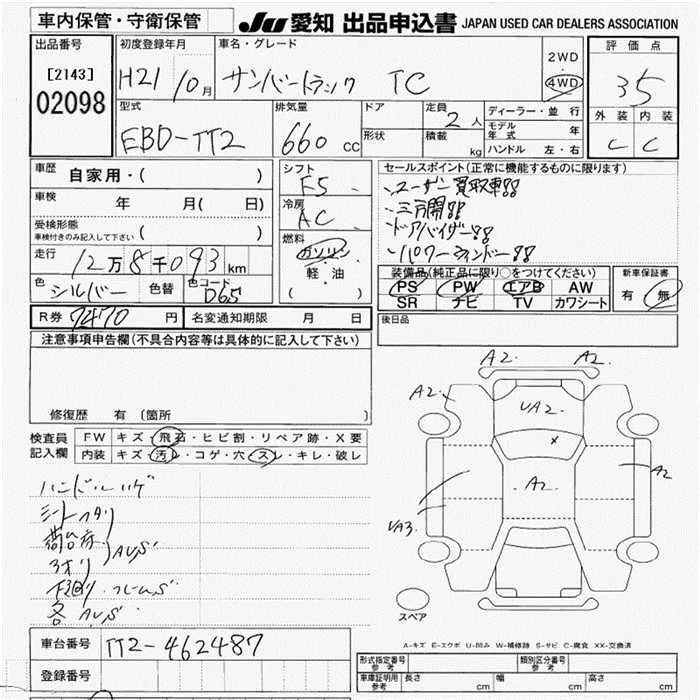 車内保管・守衛保管
JU 愛知 出品申込書 JAPAN USED CAR DEALERS ASSOCIATION
出品番号 初度登録年月 車名・グレード 2WD ・ 4WD 評価点
[2143] H21 10月 サンバートラック TC 3.5
02098
型式 排気量 ドア 定員 2人 ディーラー・並行 外装 内装
EBD-TT2 660cc 形状 積載 kg モデル年式 年 C C
ハンドル 左・右
車歴 自家用・( ) シフト F5 セールスポイント(正常に機能するものに限ります)
・ユーザー買取車!!
車検 年 月( 日) 冷房 AC ・三方開!!
受検形態 車検付きのみ記入して下さい ( ) ・ドアバイザー!!
走行 12万8千093km 燃料 ガソリン ・パワーウィンドー!!
軽・油
( )
装備品(純正品に限り○をつけてください) 新車保証書
色 シルバー 色替 色コード D65 PS PW エアB AW 有 無
SR ナビ TV カワシート
R券 7470円 名変通知期限 月 日 後日品
注意事項申告欄(不具合内容等は具体的に記入して下さい)
修復歴 有 (箇所 )
検査員記入欄 FW キズ・飛石・ヒビ割・リペア跡・X要
内装 キズ・汚レ・コゲ・穴・スレ・キレ・破レ
ハンドルハゲ
シートヘタリ
荷台床
3オリ AUS
下廻り・フレームS
各 AUS
A2 A2
A2 UA2
x
A2 A2
UA3
スペア
A-キズ E-エクボ U-凹み W-補修跡 S-サビ C-腐食 XX-交換済
車台番号 TT2-462487
登録番号
形式指定番号 参考 類別区分番号 参考
車庫証明用 参考 長さ cm 幅 cm 高さ cm